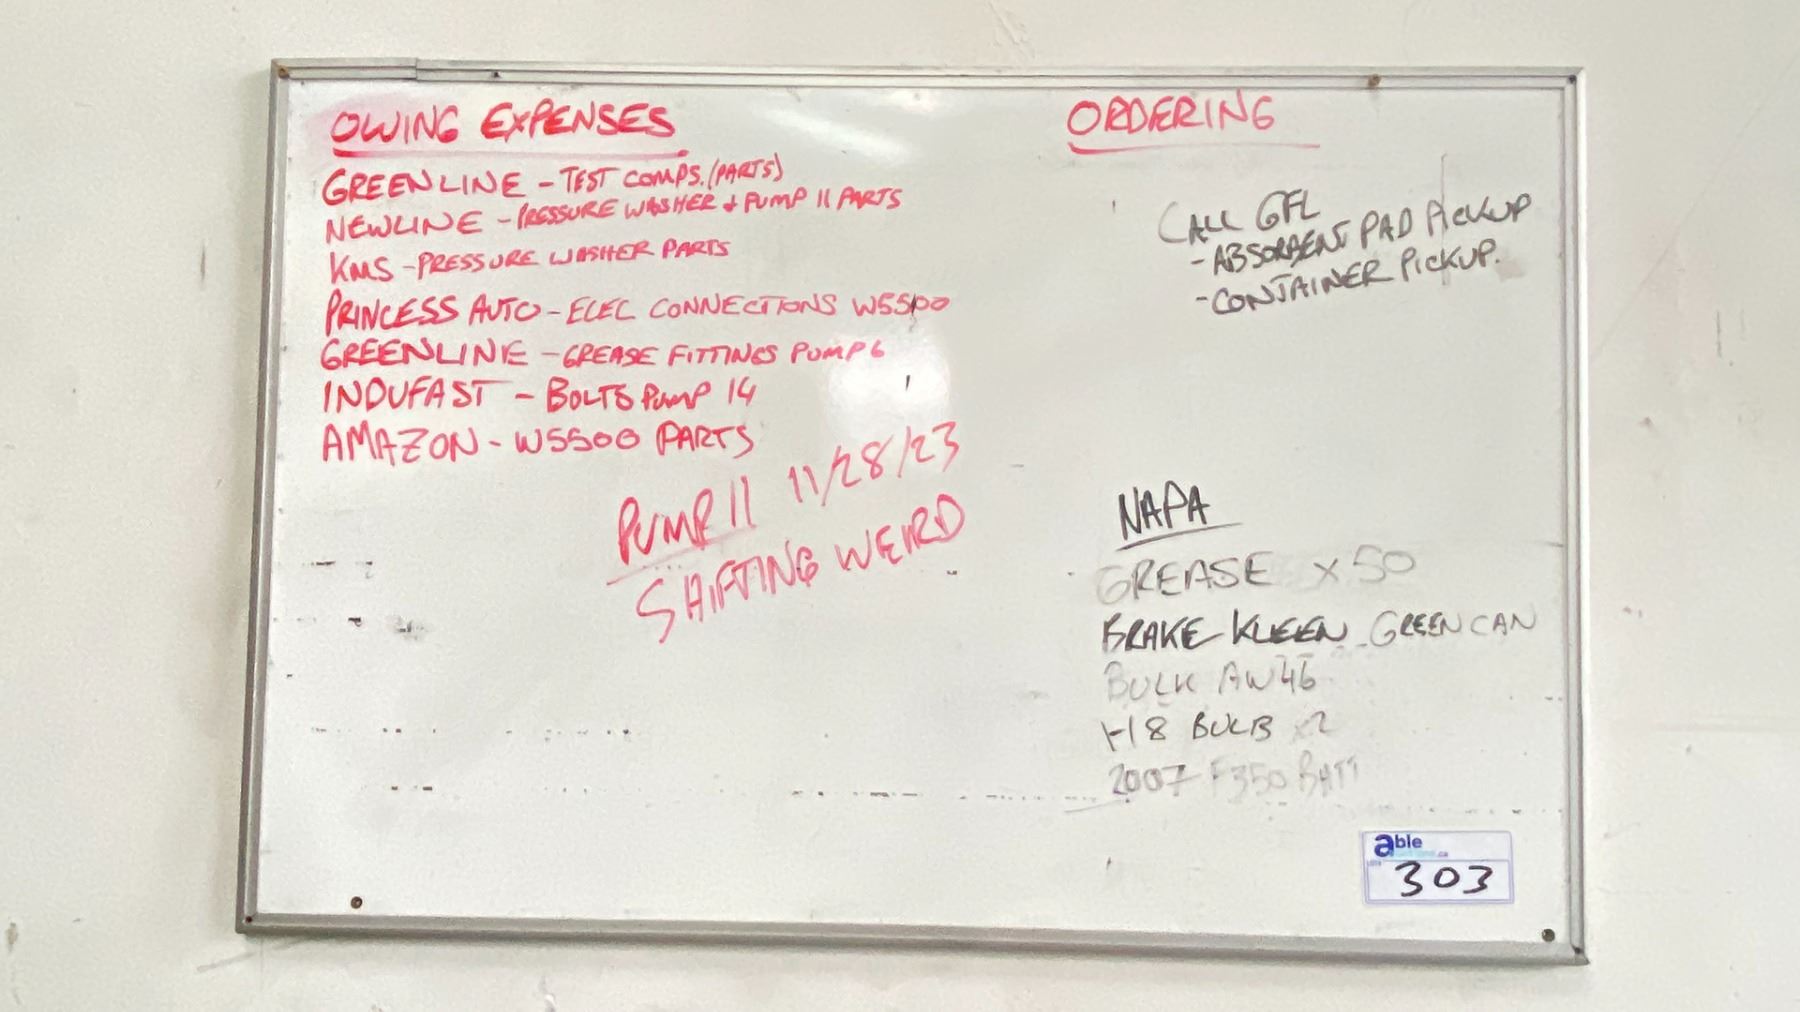 OWING EXPENSES
GREENLINE - TEST COMPS. (PARTS)
NEWLINE - PRESSURE WASHER + PUMP 11 PARTS
KMS - PRESSURE WASHER PARTS
PRINCESS AUTO - ELEC CONNECTIONS W5500
GREENLINE - GREASE FITTINGS PUMP 6
INDUFAST - BOLTS PUMP 14
AMAZON - W5500 PARTS
PUMP 11 11/28/23
SHIFTING WEIRD
ORDERING
CALL GFL
- ABSORBENT PAD PICKUP
- CONTAINER PICKUP.
NAPA
GREASE x50
BRAKE KLEEN GREEN CAN
BULK AW46
H8 BULB x2
2007 F350 BATT
able
303